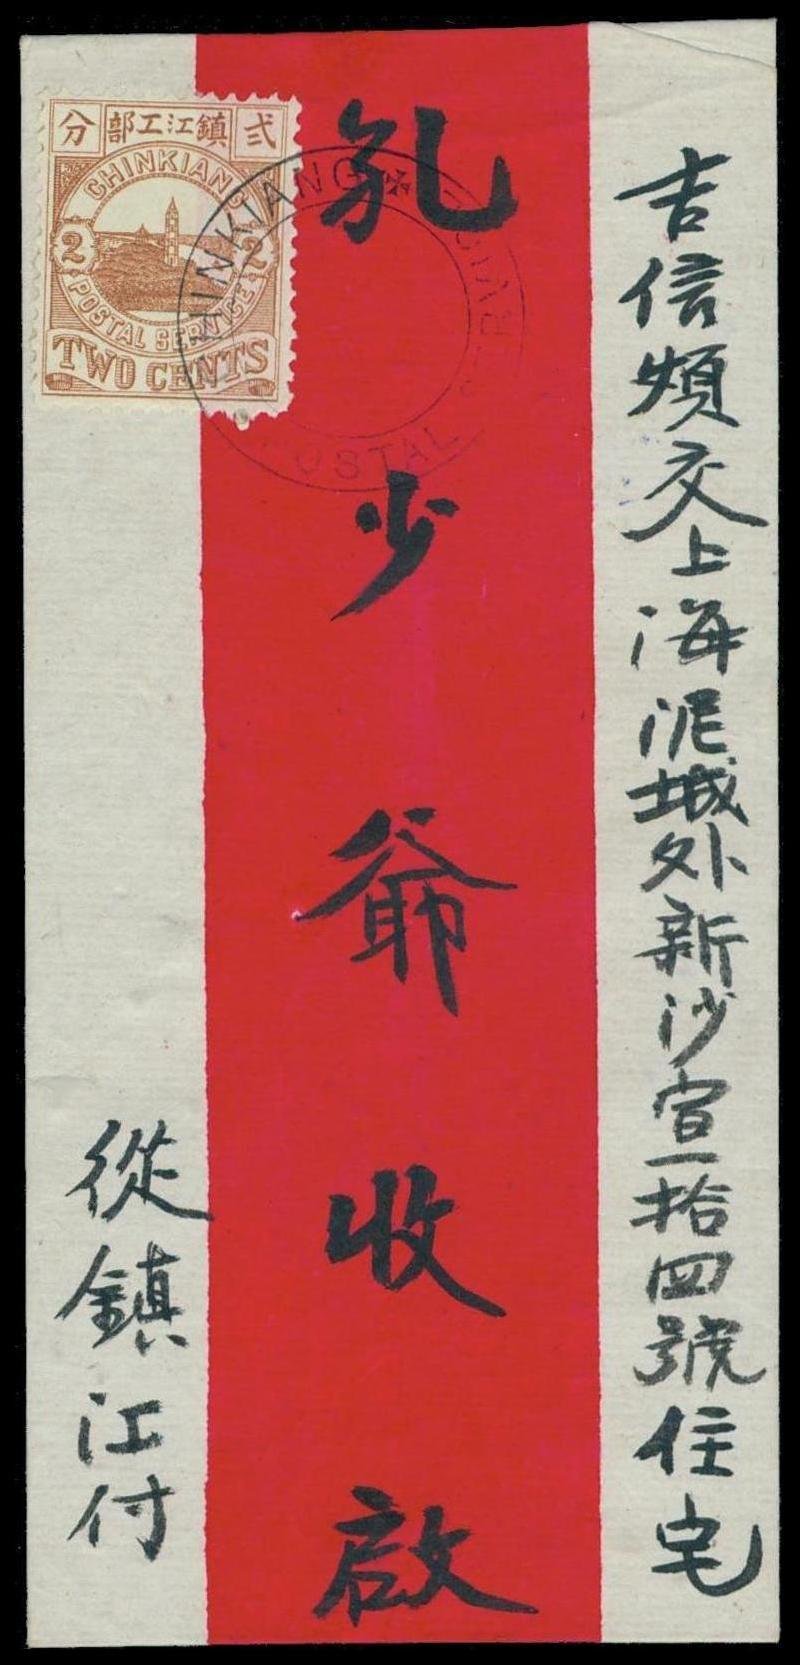 吉信煩交上海泥城外新沙宣一拾四號住宅
孔少爺收啟
從鎮江付
分 部工江鎮 弍
CHINKIANG
2 2
POSTAL SERVICE
TWO CENTS
CHINKIANG
POSTAL SERVICE